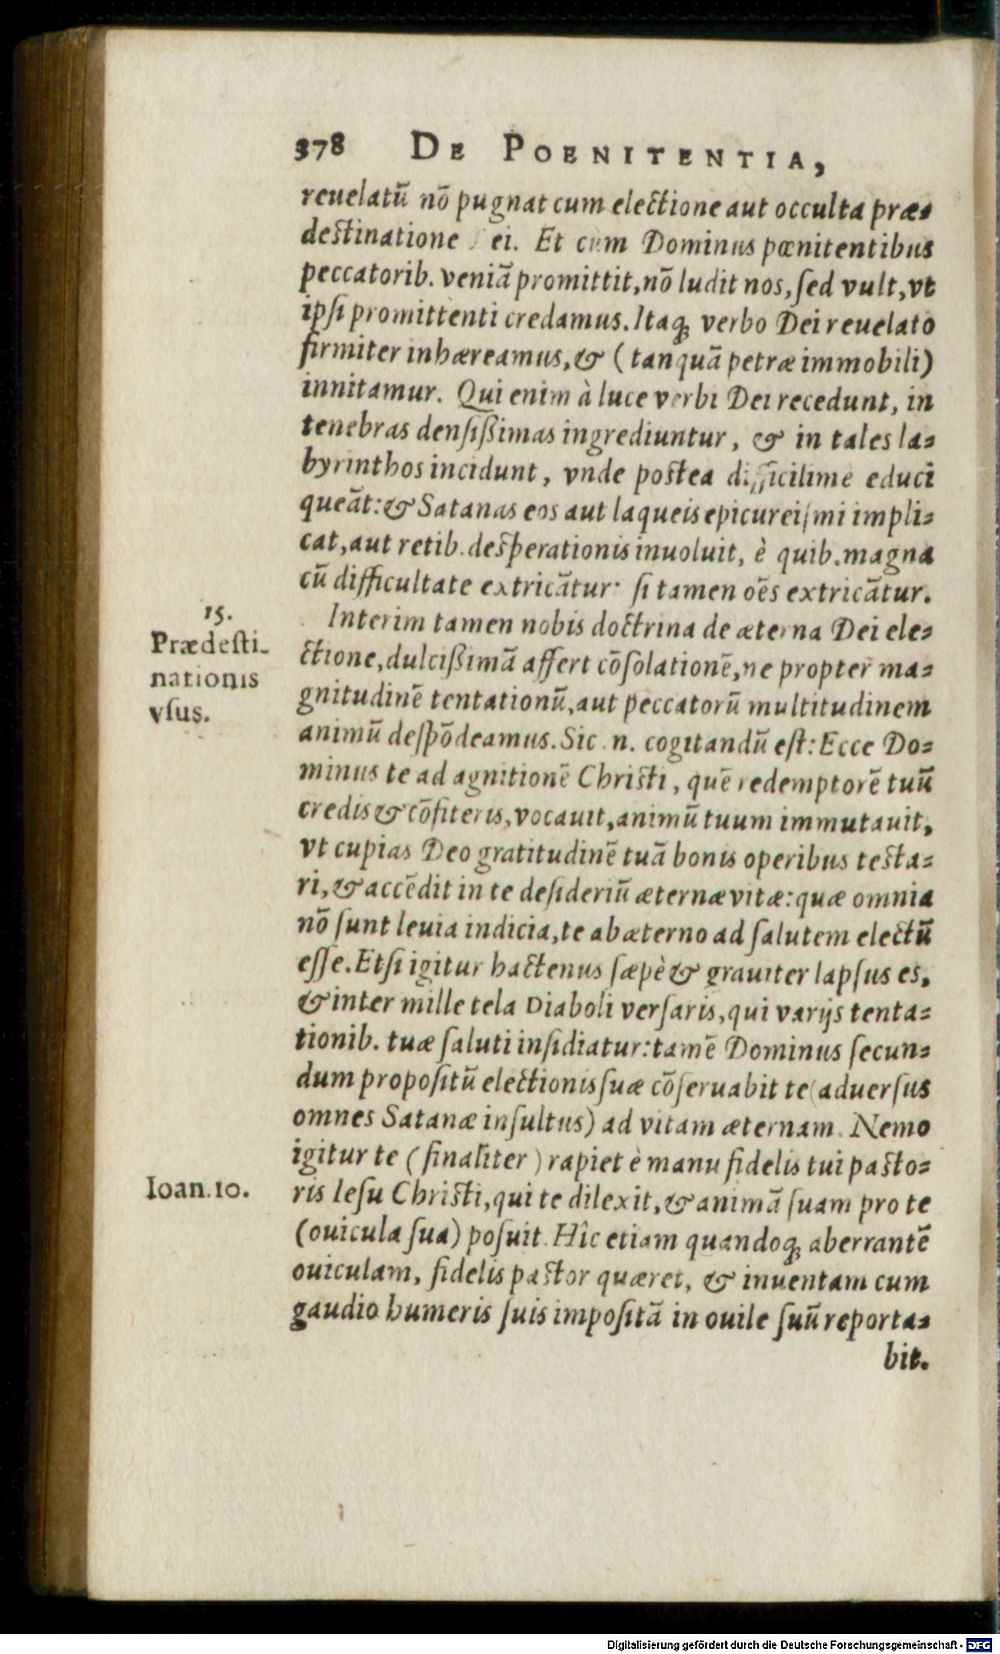 378 DE POENITENTIA,
reuelatū nō pugnat cum electione aut occulta præ-
destinatione ei. Et cum Dominus pœnitentibus
peccatorib. veniā promittit, nō ludit nos, sed vult, vt
ipsi promittenti credamus. Itaq; verbo Dei reuelato
firmiter inhæreamus, & (tanquā petræ immobili)
innitamur. Qui enim à luce verbi Dei recedunt, in
tenebras densißimas ingrediuntur, & in tales la-
byrinthos incidunt, vnde postea difficilime educi
queāt: & Satanas eos aut laqueis epicureismi impli-
cat, aut retib. desperationis inuoluit, è quib. magna
cū difficultate extricātur: si tamen oēs extricātur.
15.
Prædesti-
nationis
vsus.
Interim tamen nobis doctrina de æterna Dei ele-
ctione, dulcißimā affert cōsolationē, ne propter ma-
gnitudinē tentationū, aut peccatorū multitudinem
animū despōdeamus. Sic. n. cogitandū est: Ecce Do-
minus te ad agnitionē Christi, quē redemptorē tuū
credis & cōfiteris, vocauit, animū tuum immutauit,
vt cupias Deo gratitudinē tuā bonis operibus testa-
ri, & accēdit in te desideriū æternæ vitæ: quæ omnia
nō sunt leuia indicia, te ab æterno ad salutem electū
esse. Etsi igitur hactenus sæpè & grauiter lapsus es,
& inter mille tela Diaboli versaris, qui varijs tenta-
tionib. tuæ saluti insidiatur: tamē Dominus secun-
dum propositū electionis suæ cōseruabit te (aduersus
omnes Satanæ insultus) ad vitam æternam. Nemo
igitur te (finaliter) rapiet è manu fidelis tui pasto-
Ioan. 10.
ris Iesu Christi, qui te dilexit, & animā suam pro te
(ouicula sua) posuit. Hîc etiam quandoq; aberrantē
ouiculam, fidelis pastor quæret, & inuentam cum
gaudio humeris suis impositā in ouile suū reporta-
bit.
Digitalisierung gefördert durch die Deutsche Forschungsgemeinschaft - DFG